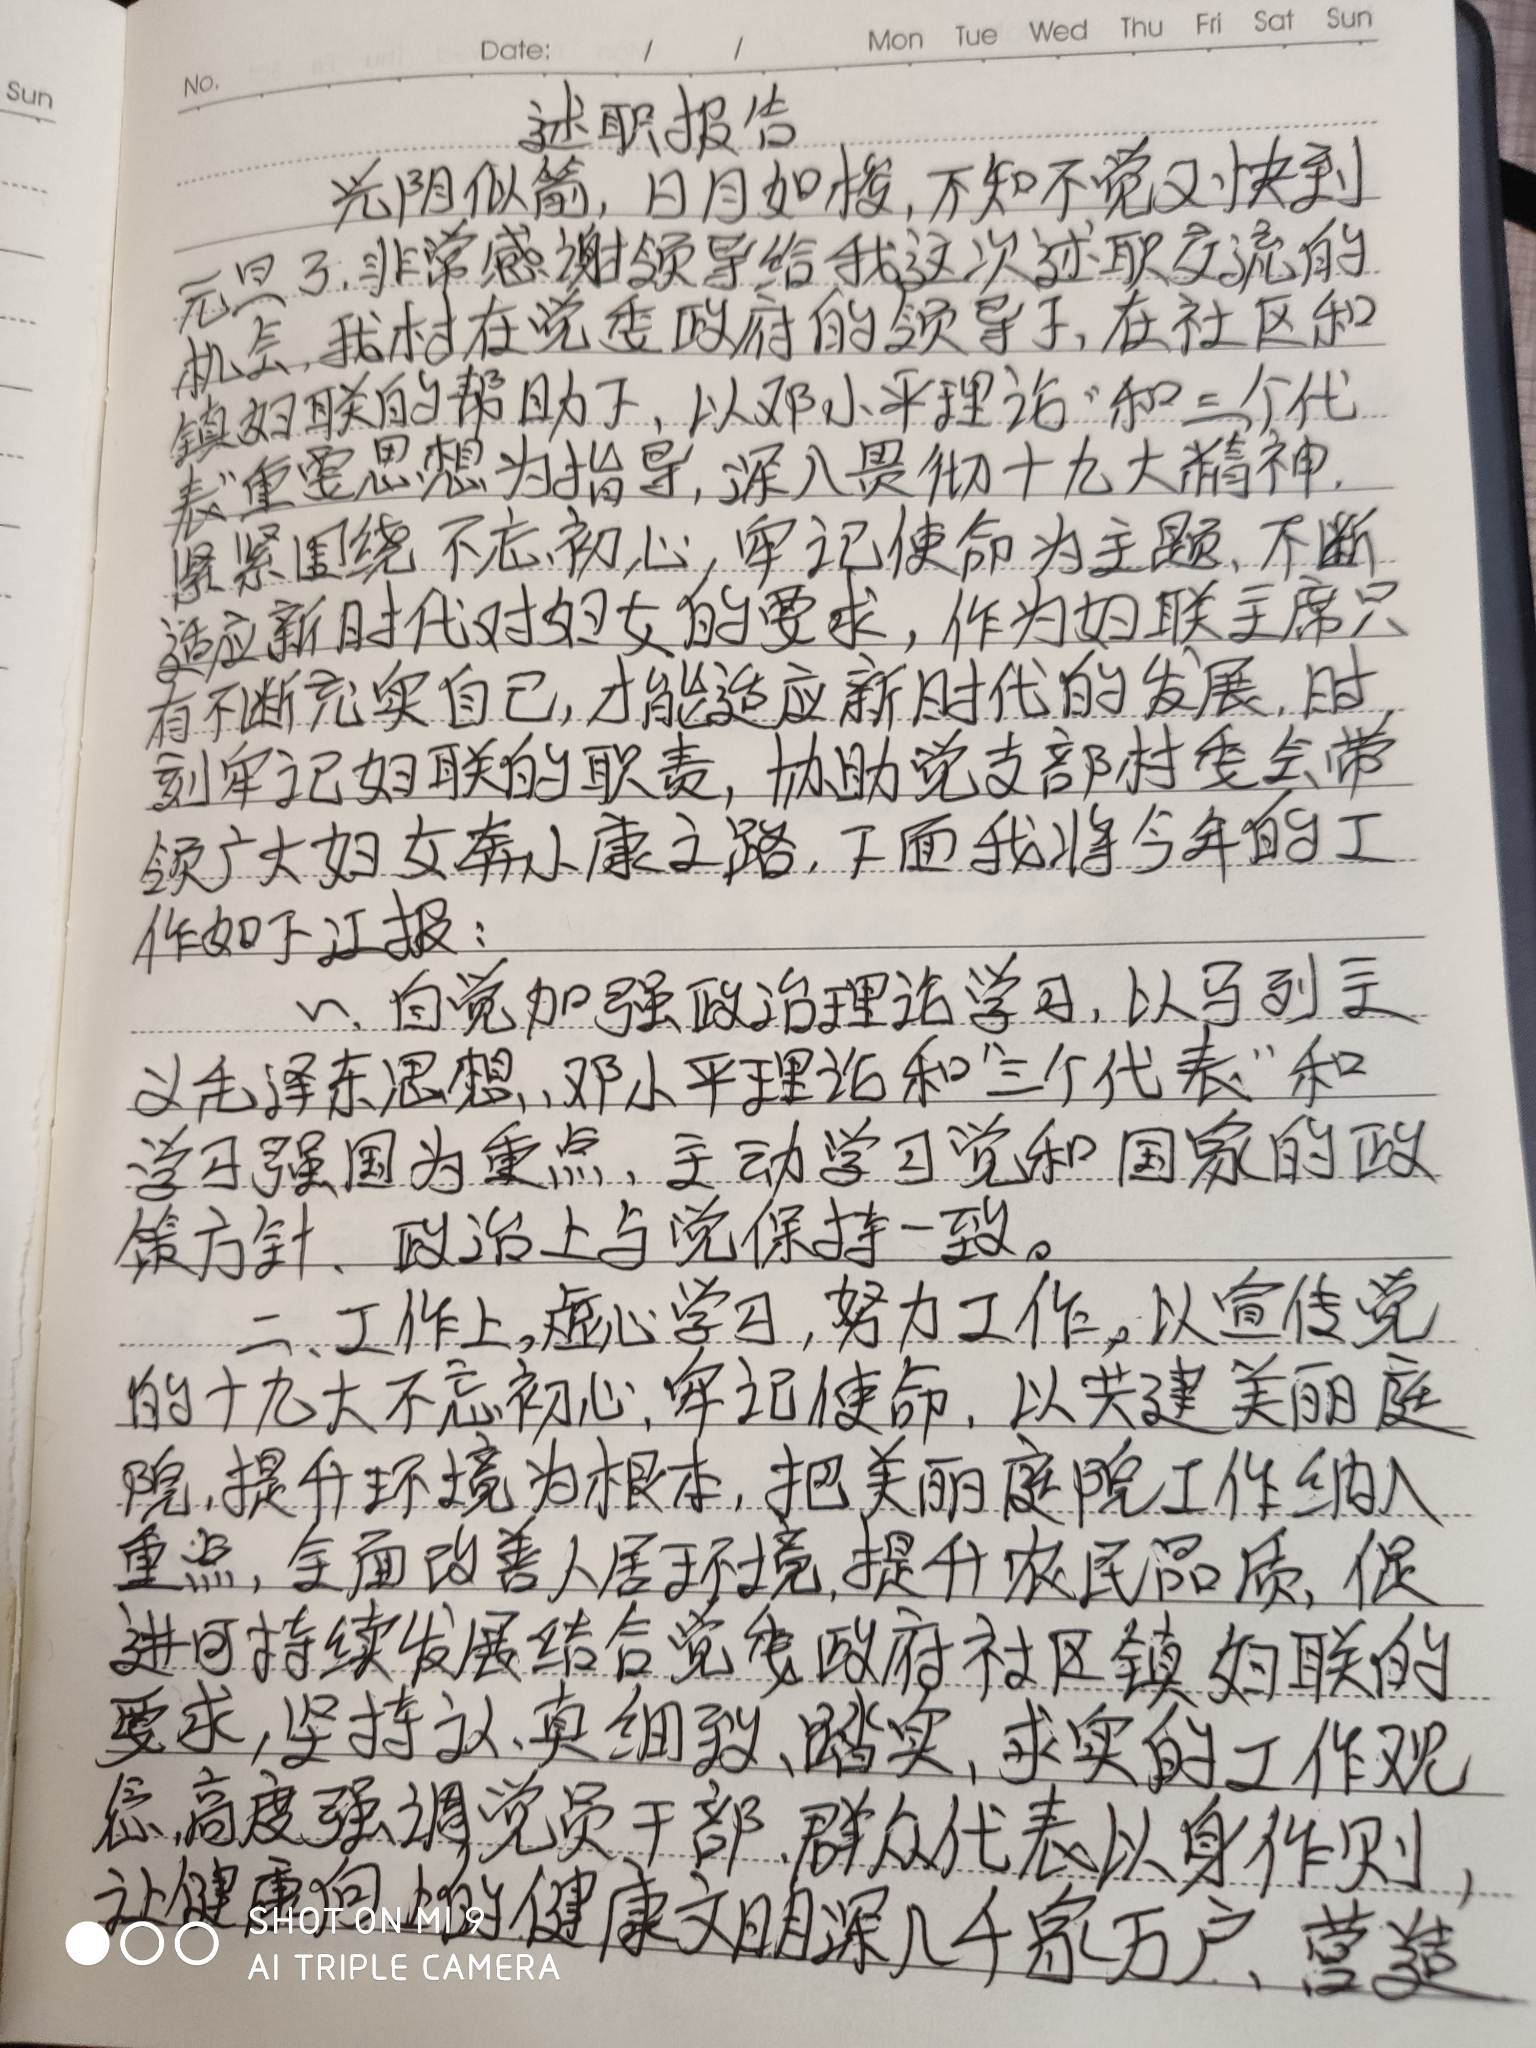 Sun
No. Date: / / Mon Tue Wed Thu Fri Sat Sun
述职报告
光阴似箭,日月如梭,不知不觉又快到
元旦了.非常感谢领导给我这次述职交流的
机会,我村在党委政府的领导下,在社区和
镇妇联的帮助下,以邓小平理论“和三个代
表”重要思想为指导,深入贯彻十九大精神.
紧紧围绕不忘初心,牢记使命为主题、不断
适应新时代对妇女的要求,作为妇联主席只
有不断充实自己,才能适应新时代的发展,时
刻牢记妇联的职责,协助党支部村委会带
领广大妇女奔小康之路.下面我将今年的工
作如下汇报:
一、自觉加强政治理论学习,以马列主
义毛泽东思想、邓小平理论和“三个代表”和
学习强国为重点、主动学习党和国家的政
策方针、政治上与党保持一致。
二、工作上,虚心学习,努力工作,以宣传党
的十九大不忘初心,牢记使命.以共建美丽庭
院,提升环境为根本,把美丽庭院工作纳入
重点,全面改善人居环境,提升农民品质,促
进可持续发展结合党委政府社区镇妇联的
要求,坚持认真细致、踏实、求实的工作观
念,高度强调党员干部.群众代表以身作则,
让健康向上的健康文明深入千家万户、营造
SHOT ON MI 9
AI TRIPLE CAMERA